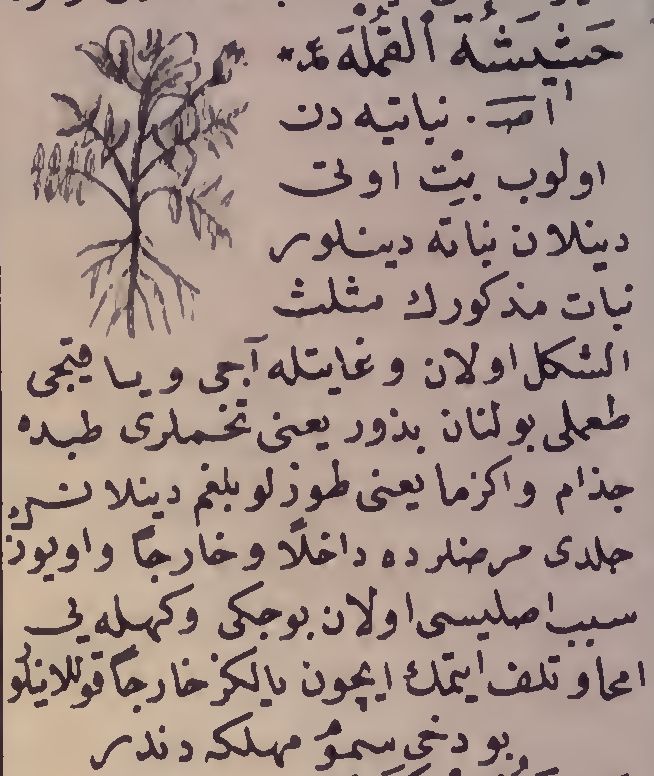 حَشِيشَةُ الْقَمْلَة
اصـ . نباتيه دن
اولوب بِتْ اوتى
دينلان نباته دينلور
نبات مذكورك مثلث
الشكل اولان وغايتله آجى ويا قيجى
طعملى بولنان بذور يعنى تخملرى طبده
جذام واكزما يعنى طوزلو بلغم دينلان
جلدى مرضلرده داخلًا وخارجًا واويوز
سبب اصليسى اولان بوجكى وكهله يى
امحا و تلف ايتمك ايچون يالكز خارجًا قوللانيلور
بو دخى سموم مهلكه دندر